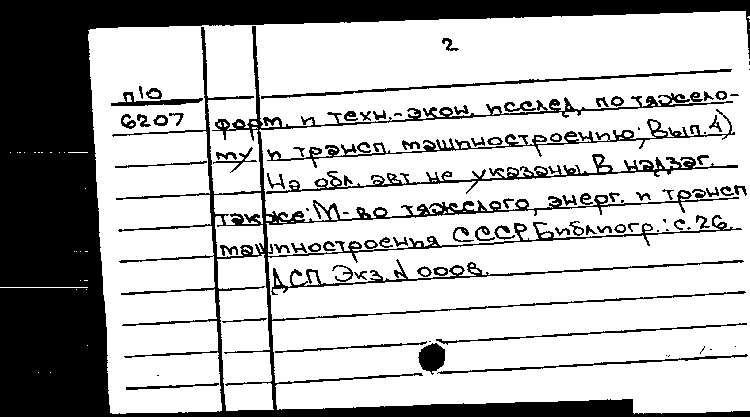 2
п/о
6207 форм. и техн.-экон. исслед. по тяжело-
му и трансп. машиностроению; Вып. 4).
На обл. авт. не указаны. В надзаг.
также: М-во тяжелого, энерг. и трансп
машиностроения СССР. Библиогр.: с. 26
ДСП Экз. N 0008.